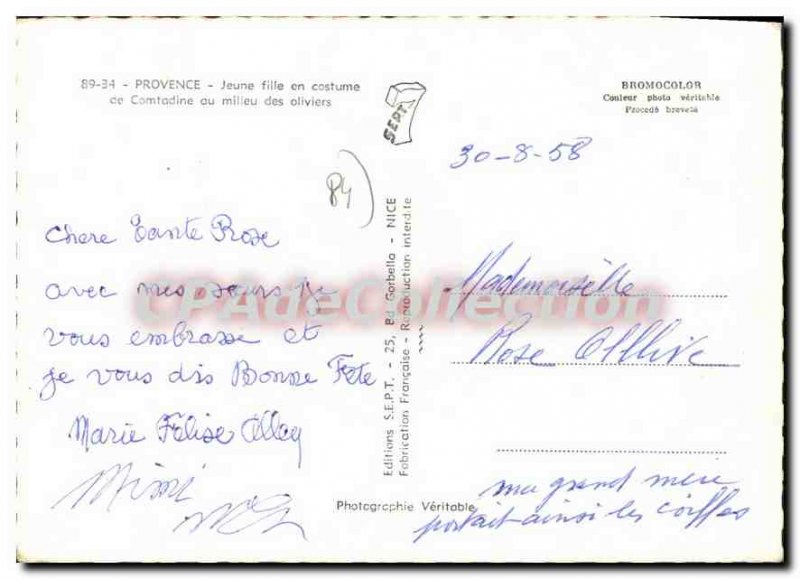 89-34 - PROVENCE - Jeune fille en costume
de Comtadine au milieu des oliviers
SEPT
BROMOCOLOR
Couleur photo véritable
Procédé breveté
30-8-58
84)
Chere Tante Rose
avec mes sœurs je
vous embrasse et
je vous dis Bonne Fête
Marie Félise
Mimi
Editions S.E.P.T. - 25, Bd Gorbella - NICE
Fabrication Française - Reproduction interdite
Mademoiselle
Rose Olllive
ma grand mere
portait ainsi les coiffes
Photographie Véritable
CPAdeCollection